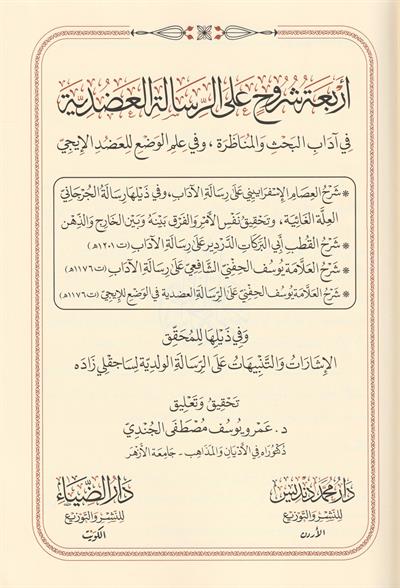 أربعة شروح على الرسالة العضدية
في آداب البحث والمناظرة، وفي علم الوضع للعضد الإيجي
* شرح العصام الإسفراييني على رسالة الآداب، وفي ذيلها رسالة الجرجاني
العلة الغائية، وتحقيق نفس الأمر والفرق بينه وبين الخارج والذهن
* شرح القطب أبي البركات الدردير على رسالة الآداب (ت ١٢٠١هـ)
* شرح العلامة يوسف الحفني الشافعي على رسالة الآداب (ت ١١٧٦هـ)
* شرح العلامة يوسف الحفني على الرسالة العضدية في الوضع للإيجي (ت ١١٧٦هـ)
وفي ذيلها للمحقق
الإشارات والتنبيهات على الرسالة الولدية لساجقلي زاده
تحقيق وتعليق
د. عمرو يوسف مصطفى الجندي
دكتوراه في الأديان والمذاهب - جامعة الأزهر
دار محمد دنديس
للنشر والتوزيع
الأردن
دار الضياء
للنشر والتوزيع
الكويت